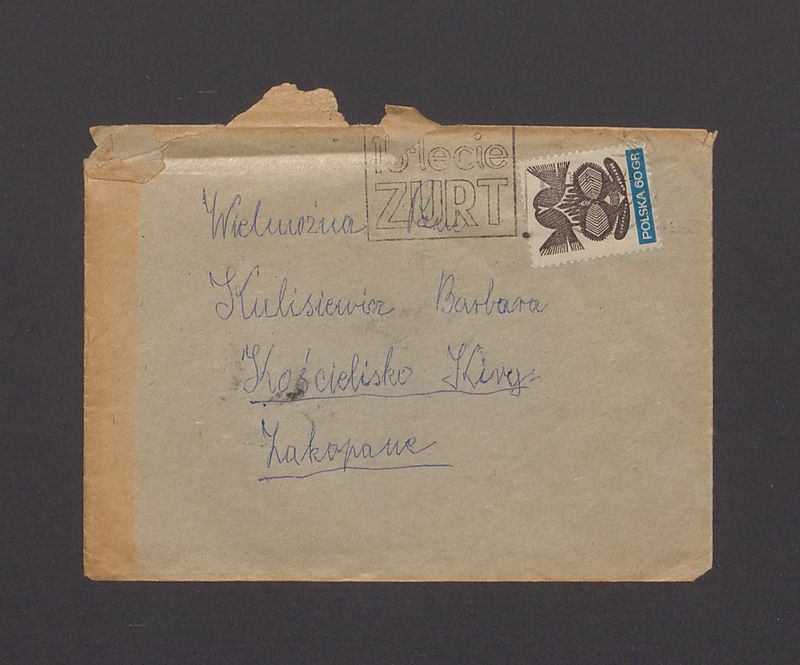 15-lecie
ZURT
POLSKA 60 GR
Wielmożna Pani
Kulisiewicz Barbara
Kościelisko
Zakopane